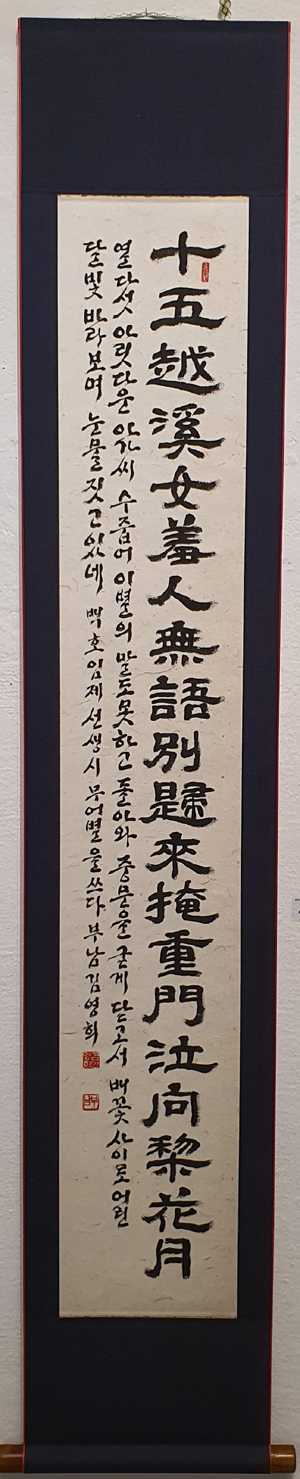 十五越溪女羞人無語別歸來掩重門泣向梨花月
열다섯 아릿다운 아가씨 수줍어 이별의 말도 못하고 돌아와 중문을 굳게 닫고서 배꽃 사이로 어린
달빛 바라보며 눈물짓고 있네 백호 임제 선생 시 무어별을 쓰다 부남 김영희